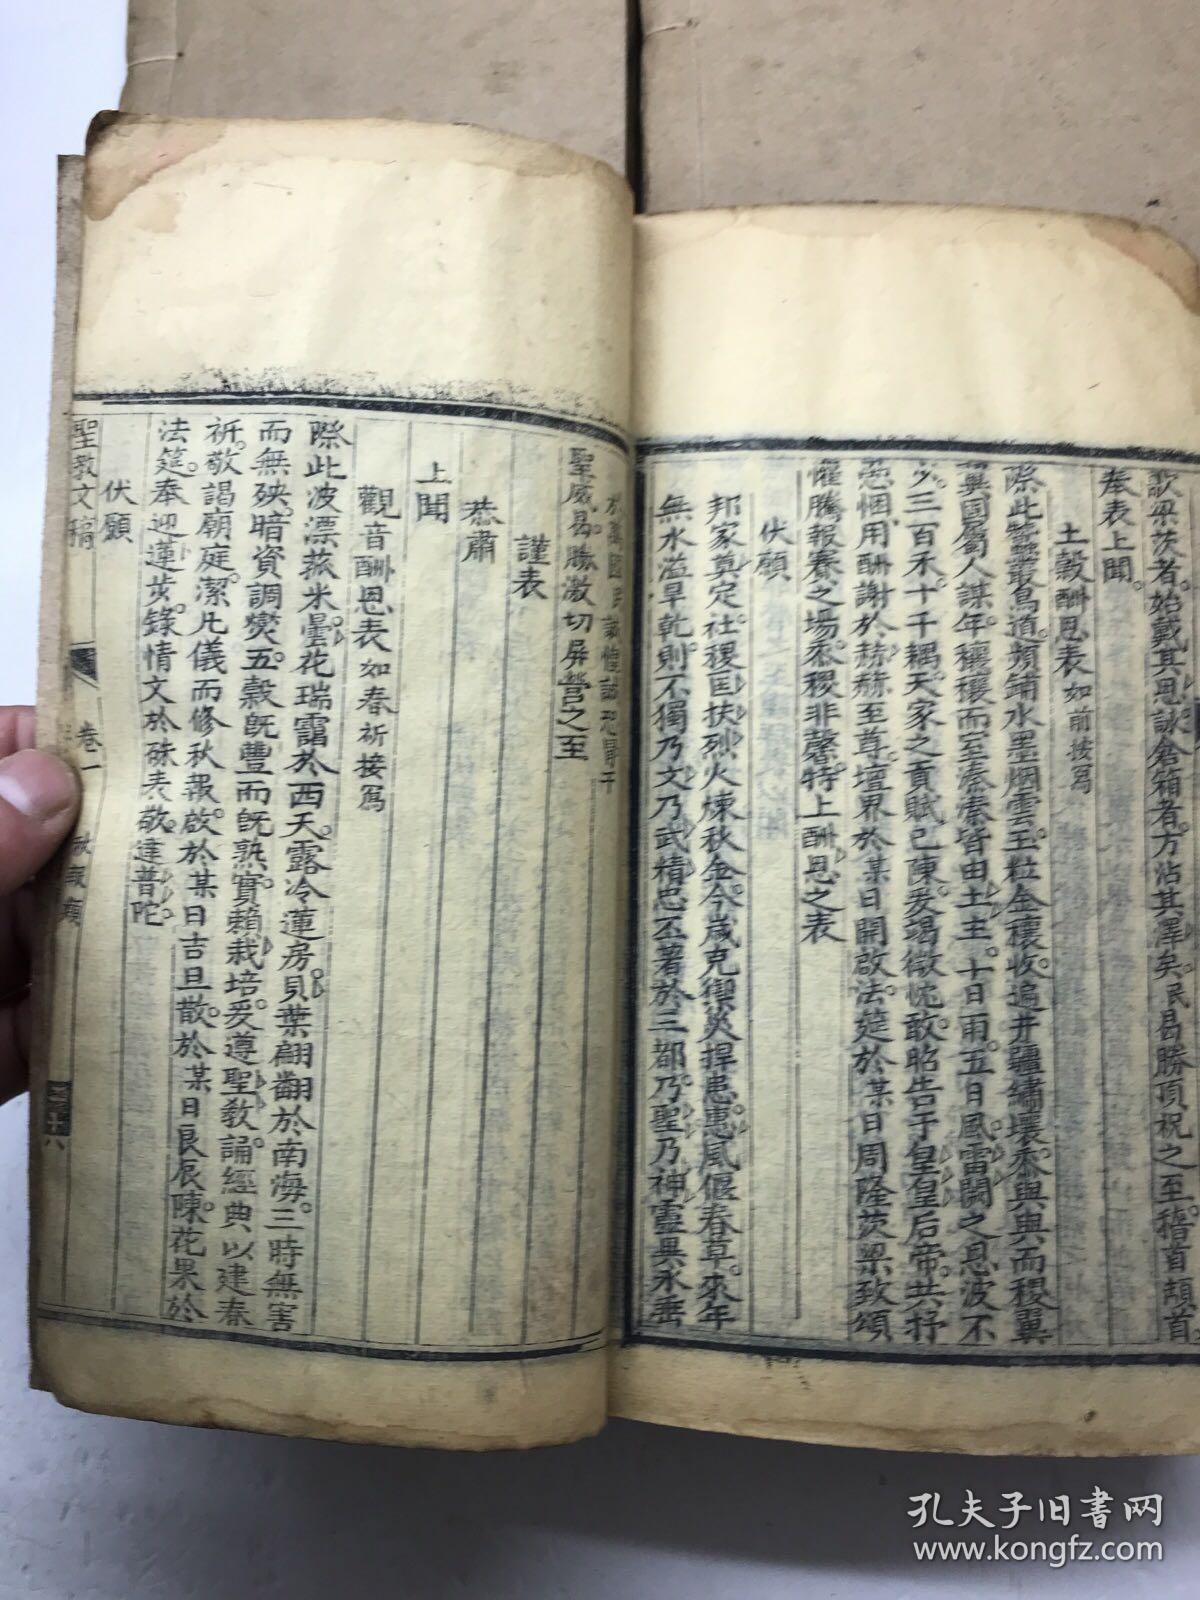 歌梁茨者始戴其恩詠倉箱者方沾其澤矣民昜勝頂祝之至稽首頓首
奉表上聞
土穀酬恩表如前按寫
際此鶯叢鳥道頻鋪水墨烟雲玉粒金穰收遍井疆繡壤黍與與而稷翼
翼国屬人謀年穰穰而至溱溱皆由土主十日雨五日風雷闢之恩波不
少三百禾十千耦天家之貢賦已陳爰竭微忱敢昭告于皇皇后帝共抒
悃用酬謝於赫赫至尊壇界於某日開啟法筵於某日周隆茨梁致頌
懽騰報賽之場黍稷非馨特上酬恩之表
伏願
邦家奠定社稷匡扶烈火煉秋金今歲克禦災捍患惠風偃春草來年
無水溢旱乾則不獨乃文乃武精忠丕著於三都乃聖乃神靈異永垂
聖威昜勝激切屏營之至
謹表
恭肅
上聞
觀音酬恩表如春祈接寫
際此波漂菰米曇花瑞靄於西天露冷蓮房貝葉翩翻於南海三時無害
而無殃暗資調燮五穀旣豐而旣熟實賴栽培爰遵聖敎誦經典以建春
祈敬謁廟庭潔凡儀而修秋報啟於某日吉旦散於某日良辰陳花果於
法筵奉迎蓮步錄情文於硃表敬達普陀
伏願
聖教文稿
卷一
秋報類
孔夫子旧書网
www.kongfz.com